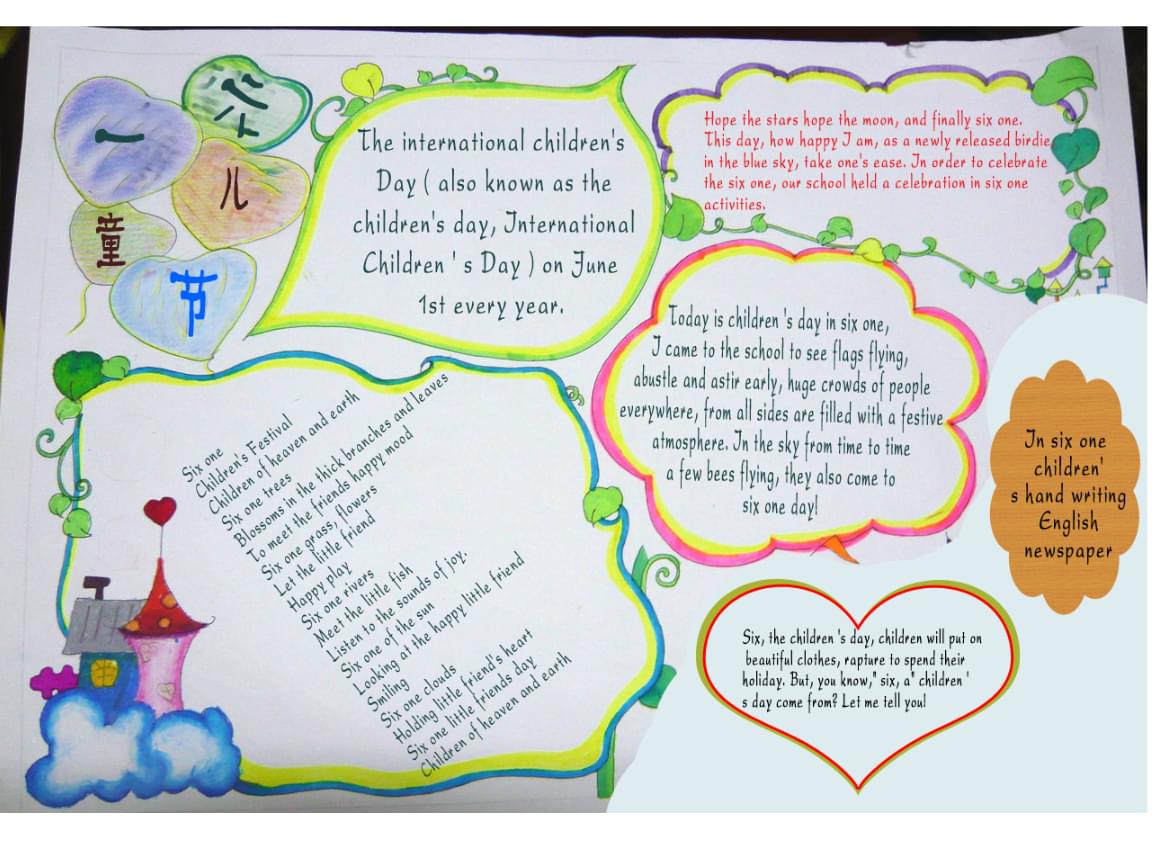 六
一
儿
童
节
The international children's
Day ( also known as the
children's day, International
Children ' s Day ) on June
1st every year.
Hope the stars hope the moon, and finally six one.
This day, how happy I am, as a newly released birdie
in the blue sky, take one's ease. In order to celebrate
the six one, our school held a celebration in six one
activities.
Today is children 's day in six one,
I came to the school to see flags flying,
abustle and astir early, huge crowds of people
everywhere, from all sides are filled with a festive
atmosphere. In the sky from time to time
a few bees flying, they also come to
six one day!
In six one
children'
s hand writing
English
newspaper
Six one
Children's Festival
Children of heaven and earth
Six one trees
Blossoms in the thick branches and leaves
To meet the friends happy mood
Six one grass, flowers
Let the little friend
Happy play
Six one rivers
Meet the little fish
Listen to the sounds of joy.
Six one of the sun
Looking at the happy little friend
Smiling
Six one clouds
Holding little friend's heart
Six one little friends day
Children of heaven and earth
Six, the children 's day, children will put on
beautiful clothes, rapture to spend their
holiday. But, you know," six, a" children '
s day come from? Let me tell you!